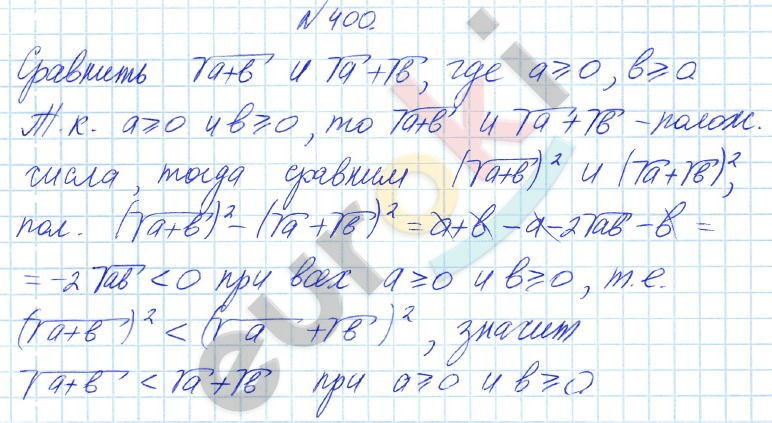 №400.
Сравнить √a+в и √a+√в, где a≥0, в≥0
Т.к. a≥0 и в≥0, то √a+в и √a+√в - полож.
числа, тогда сравним (√a+в)² и (√a+√в)²,
пол. (√a+в)²-(√a+√в)²=a+в-a-2√aв-в=
=-2√aв<0 при всех a≥0 и в≥0, т.е.
(√a+в)²<(√a+√в)², значит
√a+в<√a+√в при a≥0 и в≥0
euroki